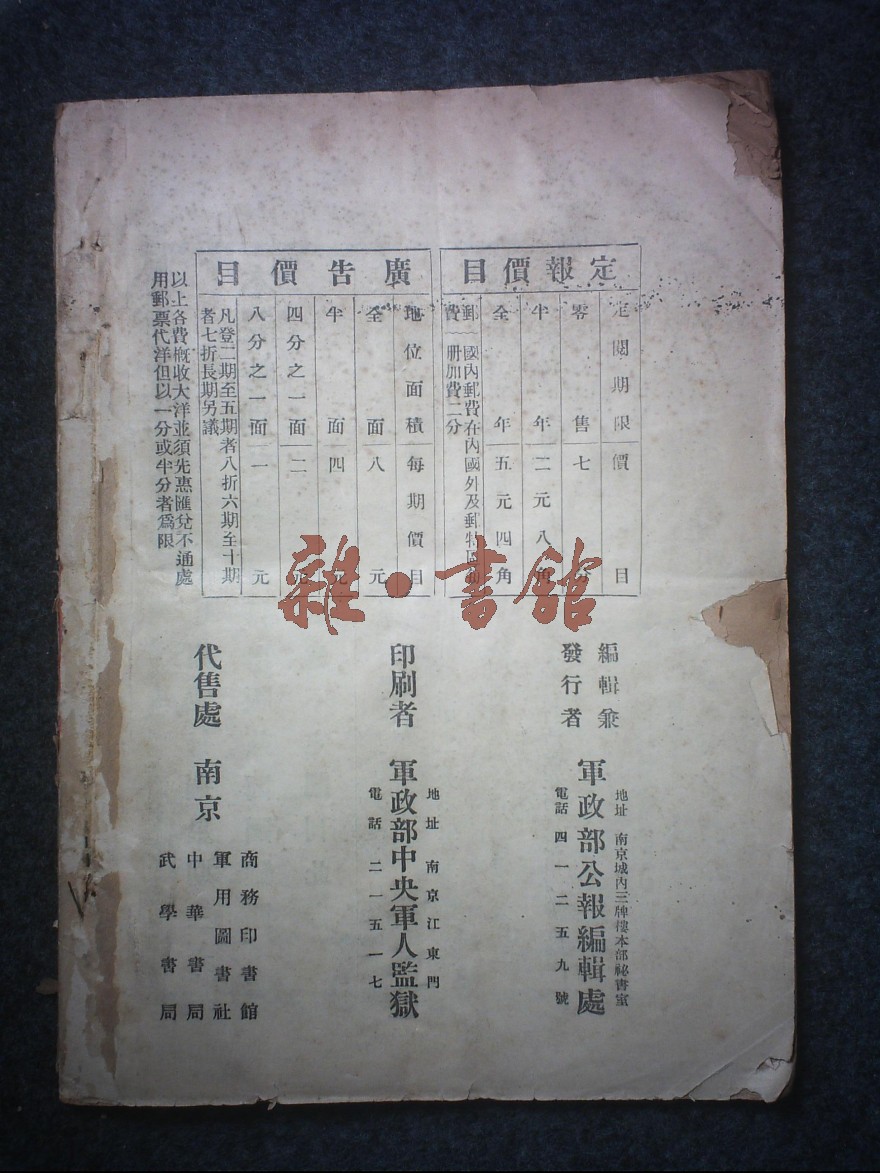 定報價目
定閱期限 價目
零售 七分
半年 二元八角
全年 五元四角
郵費 國內郵費在內國外及郵特區
册加費二分
廣告價目
地位面積 每期價目
全面 八元
半面 四元
四分之一面 二
八分之一面 一元
凡登二期至五期者八折六期至十期
者七折長期另議
以上各費概收大洋並須先惠匯兌不通處
用郵票代洋但以一分或半分者爲限
雜·書館
編輯兼
發行者
地址 南京城內三牌樓本部祕書室
軍政部公報編輯處
電話 四一二五九號
印刷者
地址 南京江東門
軍政部中央軍人監獄
電話 二一五一七
代售處 南京
商務印書館
軍用圖書社
中華書局
武學書局